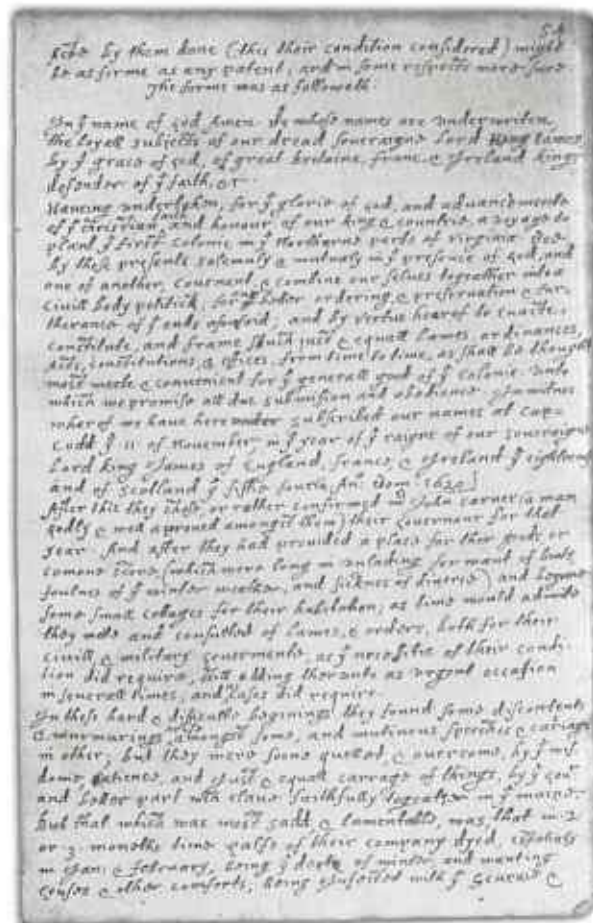 54
by them done (this their condition considered) might
be as firme as any patent; and in some respects more sure.
The forme was as followeth.
In yͤ name of god Amen. We whose names are underwriten,
the loyall subjects of our dread soveraigne Lord King James
by yͤ grace of god, of great Britaine, franc, & Ireland king,
defender of yͤ faith, &c
Haveing undertaken, for yͤ glorie of god, and advancemente
of yͤ christian faith and honour of our king & countrie, a voyage to
plant yͤ first colonie in yͤ Northerne parts of Virginia. Doe
by these presents solemnly & mutualy in yͤ presence of god, and
one of another, covenant, & combine our selves togeather into a
civill body politick; for our better ordering, & preservation & fur-
therance of yͤ ends aforesaid; and by vertue hearof to enacte,
constitute, and frame shuch just & equall lawes, ordinances,
Acts, constitutions, & offices, from time to time, as shall be thought
most meete & convenient for yͤ generall good of yͤ colonie: unto
which we promise all due submission and obedience. In witnes
wherof we have hereunder subscribed our names at Cap-
Codd yͤ 11 of November, in yͤ year of yͤ raigne of our soveraigne
Lord king James of England, france, & Ireland yͤ eighteenth
and of Scotland yͤ fiftie fourth. An°: Dom. 1620.]
After this they chose, or rather confirmed mʳ John carver (a man
godly & well approved amongst them) their Governour for that
year. And after they had provided a place for their goods, or
comone store, (which were long in unlading for want of boats,
foulnes of yͤ winter weather, and sicknes of diverce) and begune
some small cottages for their habitation; as time would admitte
they mette and consulted of lawes, & orders, both for their
civill, & military Govermente, as yͤ necessitie of their condi-
tion did require, still adding therunto as urgent occasion
in severall times, and as cases did require.
In these hard & difficulte beginings they found some discontents
& murmurings amongst some, and mutinous speeches & cariage
in other; but they were soone quelled, & overcome, by yͤ wis-
dome, patience, and just & equall carrage of things, by yͤ Govʳ
and better part wᶜʰ clave faithfully togeather in yͤ maine.
But that which was most sadd, & lamentable, was, that in 2
or 3 moneths time halfe of their company dyed, espetialy
in Jan: & february, being yͤ depth of winter, and wanting
houses & other comforts; being Infected with yͤ Scurvie &